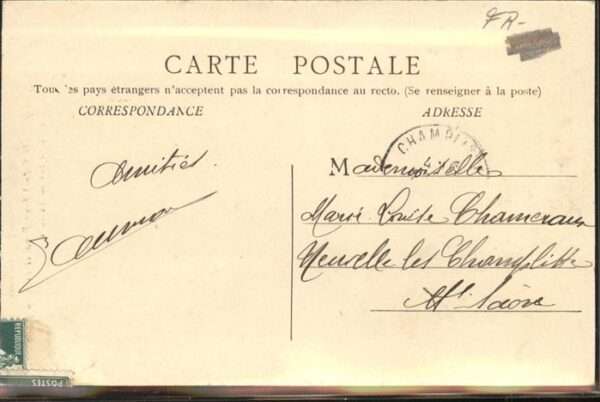 FR-
CARTE POSTALE
Tous les pays étrangers n'acceptent pas la correspondance au recto. (Se renseigner à la poste)
CORRESPONDANCE
ADRESSE
CHAMPLI
Amitiés
Mademoiselle
Marie Louise Chameraux
Neuvelle les Champlitte
Hte Saône
REPUBLIQUE
POSTES